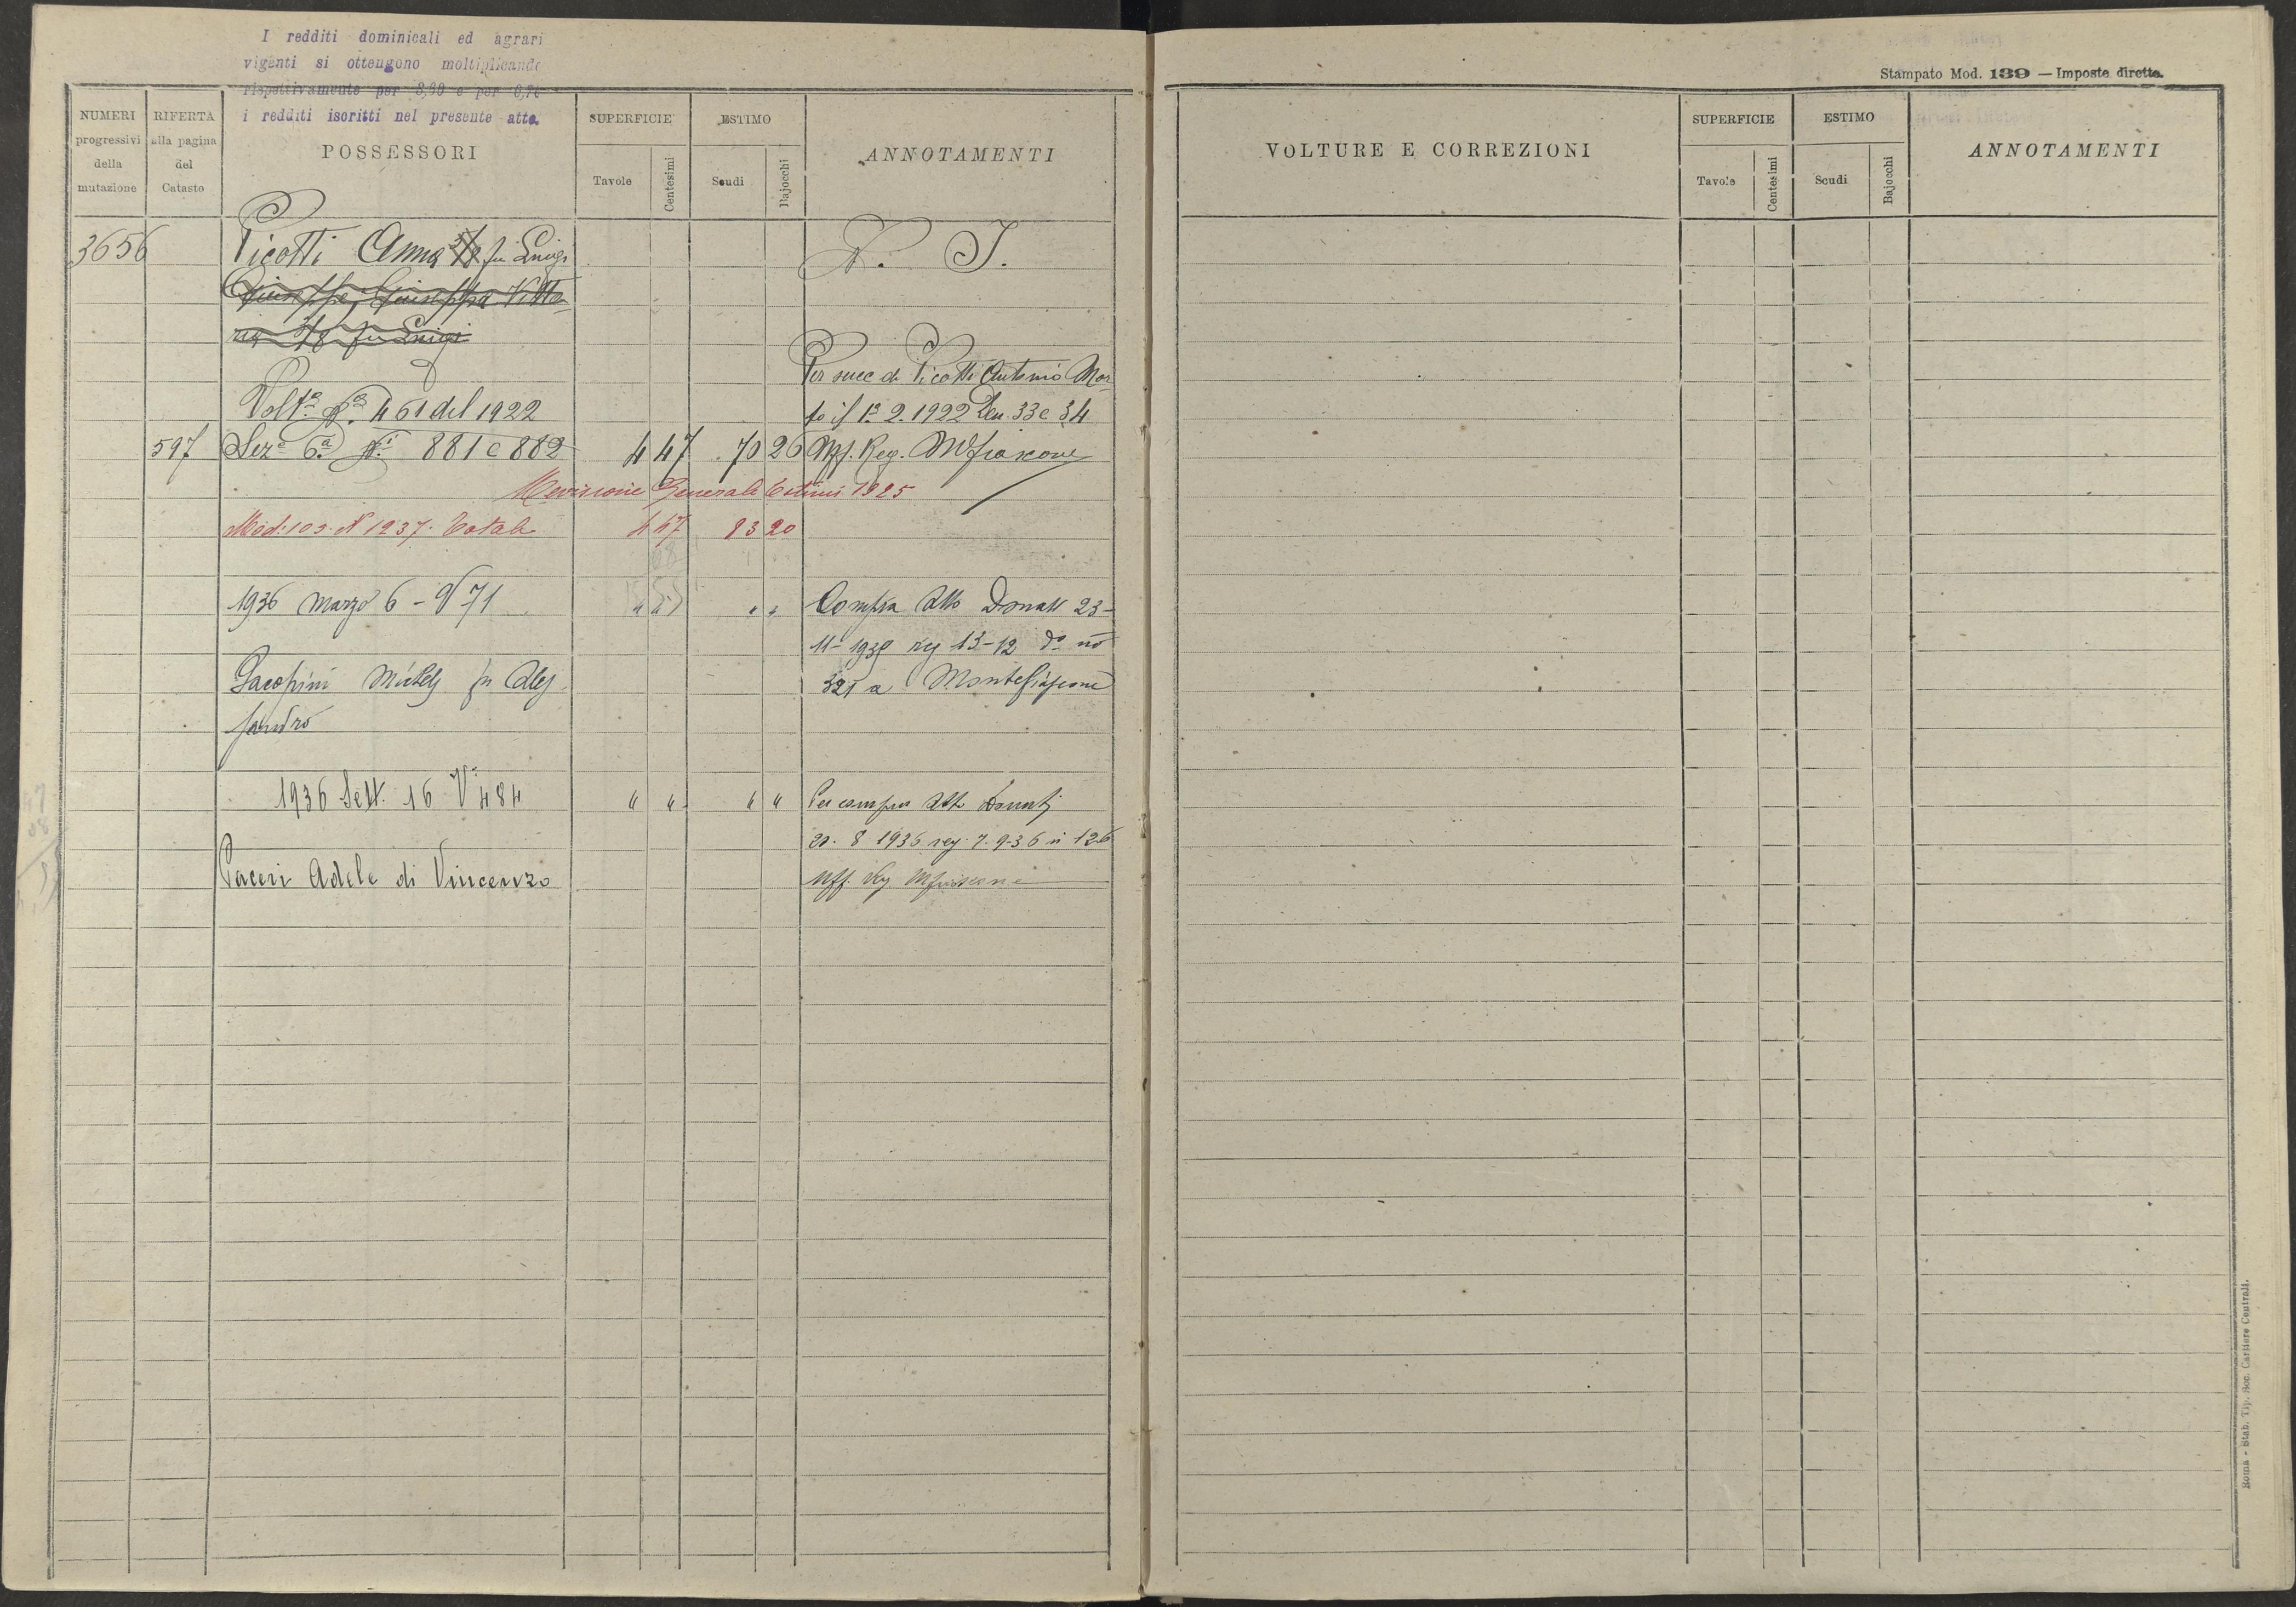 I redditi dominicali ed agrari
vigenti si ottengono moltiplicando
rispettivamente per e per
i redditi iscritti nel presente atto.
Stampato Mod. 139 — Imposte dirette.
NUMERI progressivi della mutazione
RIFERTA alla pagina del Catasto
POSSESSORI
SUPERFICIE
Tavole
Centesimi
ESTIMO
Scudi
Bajocchi
ANNOTAMENTI
VOLTURE E CORREZIONI
SUPERFICIE
Tavole
Centesimi
ESTIMO
Scudi
Bajocchi
ANNOTAMENTI
3656 Picotti Anna fu Luigi N. I.
Giuseppe, Giuseppa Vitto-
ria 3/8 fu Luigi
Per succ di Picotti Antonio Mor-
Volta No 461 del 1922 to il 1º 2. 1922 Den. 33 e 34
597 Seze 6a Ni 881 e 882 4 47 70 26 Uff. Reg. Mfiascone
Revisione Generale Estimi 1925
Mod. 103. N 1237. Totale 4 47 83 20
1936 Marzo 6 - V 71 " " " " Compra Atto Donati 23-
11-1935 reg 13-12 do no
Jacopini fu Ales 321 a Montefiascone
sandro
1936 Sett. 16 V 484 " " " " Per compra Atto Donati
20. 8 1936 reg. 7. 9-36 n 126
Paceri Adele di Vincenzo Uff. Reg. Mfiascone
Roma - Stab. Tip. Soc. Cartiere Centrali.